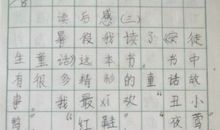 读后感(三)
暑假我读了《安徒
生童话》这本书。书中
有很多精彩的童话故
事。我最xi欢“丑小
鸭”“红鞋”“夜莺